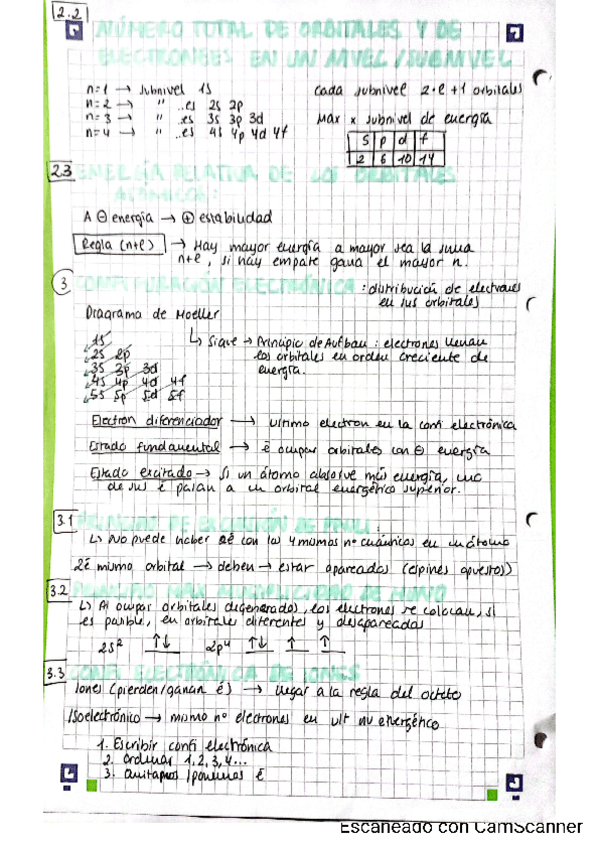 2.2 NÚMERO TOTAL DE ORBITALES Y DE
ELECTRONES EN UN NIVEL/SUBNIVEL
n=1 → subnivel 1s
n=2 → " ..es 2s 2p
n=3 → " ..es 3s 3p 3d
n=4 → " ..es 4s 4p 4d 4f
Cada subnivel 2·l+1 orbitales
Max x subnivel de energía
s p d f
2 6 10 14
2.3 ENERGÍA RELATIVA DE LOS ORBITALES
ATÓMICOS:
A ⊖ energía → ⊕ estabilidad
Regla (n+l) → Hay mayor energía a mayor sea la suma
n+l, si hay empate gana el mayor n.
3 CONFIGURACIÓN ELECTRÓNICA : distribución de electrones
en sus orbitales
Diagrama de Moeller
↳ Sigue → Principio de Aufbau : electrones llenan
los orbitales en orden creciente de
energía.
1s
2s 2p
3s 3p 3d
4s 4p 4d 4f
5s 5p 5d 5f
Electron diferenciador → ultimo electron en la conf electrónica
Estado fundamental → é ocupar orbitales con ⊖ energía
Estado excitado → Si un átomo absorve más energía, uno
de sus é pasan a un orbital energético superior.
3.1 PRINCIPIO DE EXCLUSIÓN DE PAULI :
↳ No puede haber 2é con los 4 mismos nº cuánticos en un átomo
2é mismo orbital → deben → estar apareados (espines opuestos)
3.2 PRINCIPIO MÁX MULTIPLICIDAD DE HUND
↳ Al ocupar orbitales degenerados, los electrones se colocan, si
es posible, en orbitales diferentes y desapareados
2s² ↑↓ 2p⁴ ↑↓ ↑ ↑
3.3 CONF ELECTRÓNICA DE IONES
Iones (pierden/ganan é) → llegar a la regla del octeto
Isoelectrónico → mismo nº electrones en ult niv energético
1. Escribir conf electrónica
2. Ordenar 1,2,3,4...
3. Quitamos/ponemos é
Escaneado con CamScanner